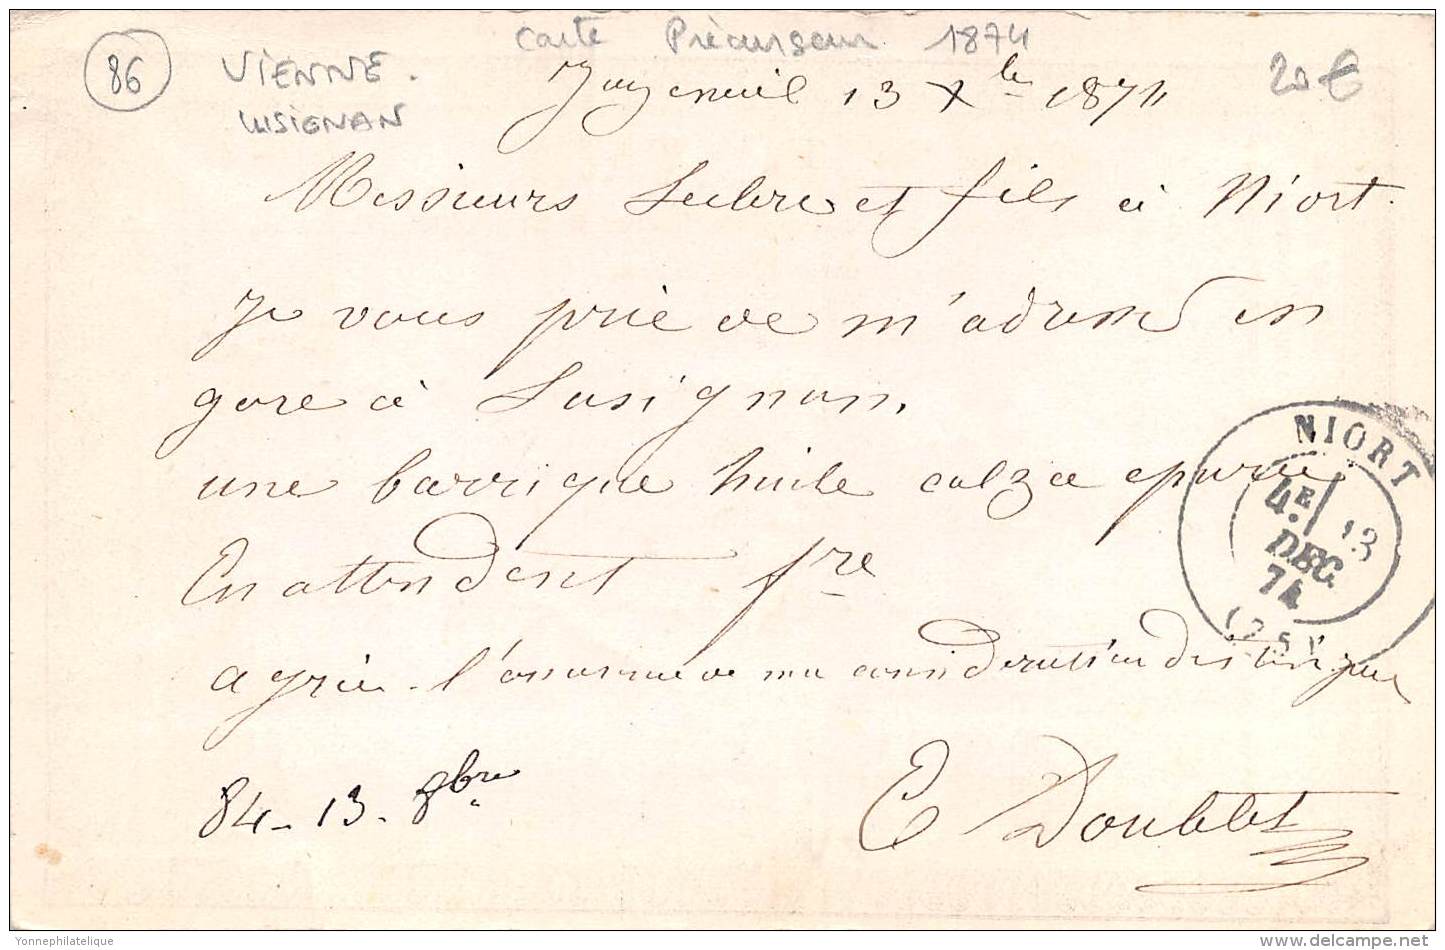 86
VIENNE.
LUSIGNAN
Carte Précurseur 1874
20 €
Jazeneuil 13 Xbre 1874
Messieurs et fils à Niort.
Je vous prie de m'adresse en
gare à Lusignan,
une barrique huile colza epurée
En attendent fre
agrée l'assurance de ma consideration distingue
84 - 13 - 8bre
E Doubblet
NIORT
4.E/ 13
DEC.
74
(75)
Yonnephilatelique
delcampe.net